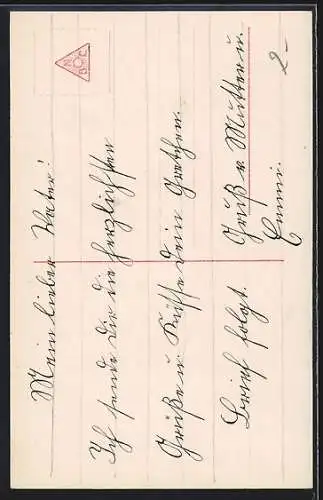 Mein lieber Vater!
Ich sende Dir die herzlichsten
Grüße u. Küsse Dein Gretchen.
Gruß v. Mutter u.
Brief folgt. Emmi.
2-
N
B C